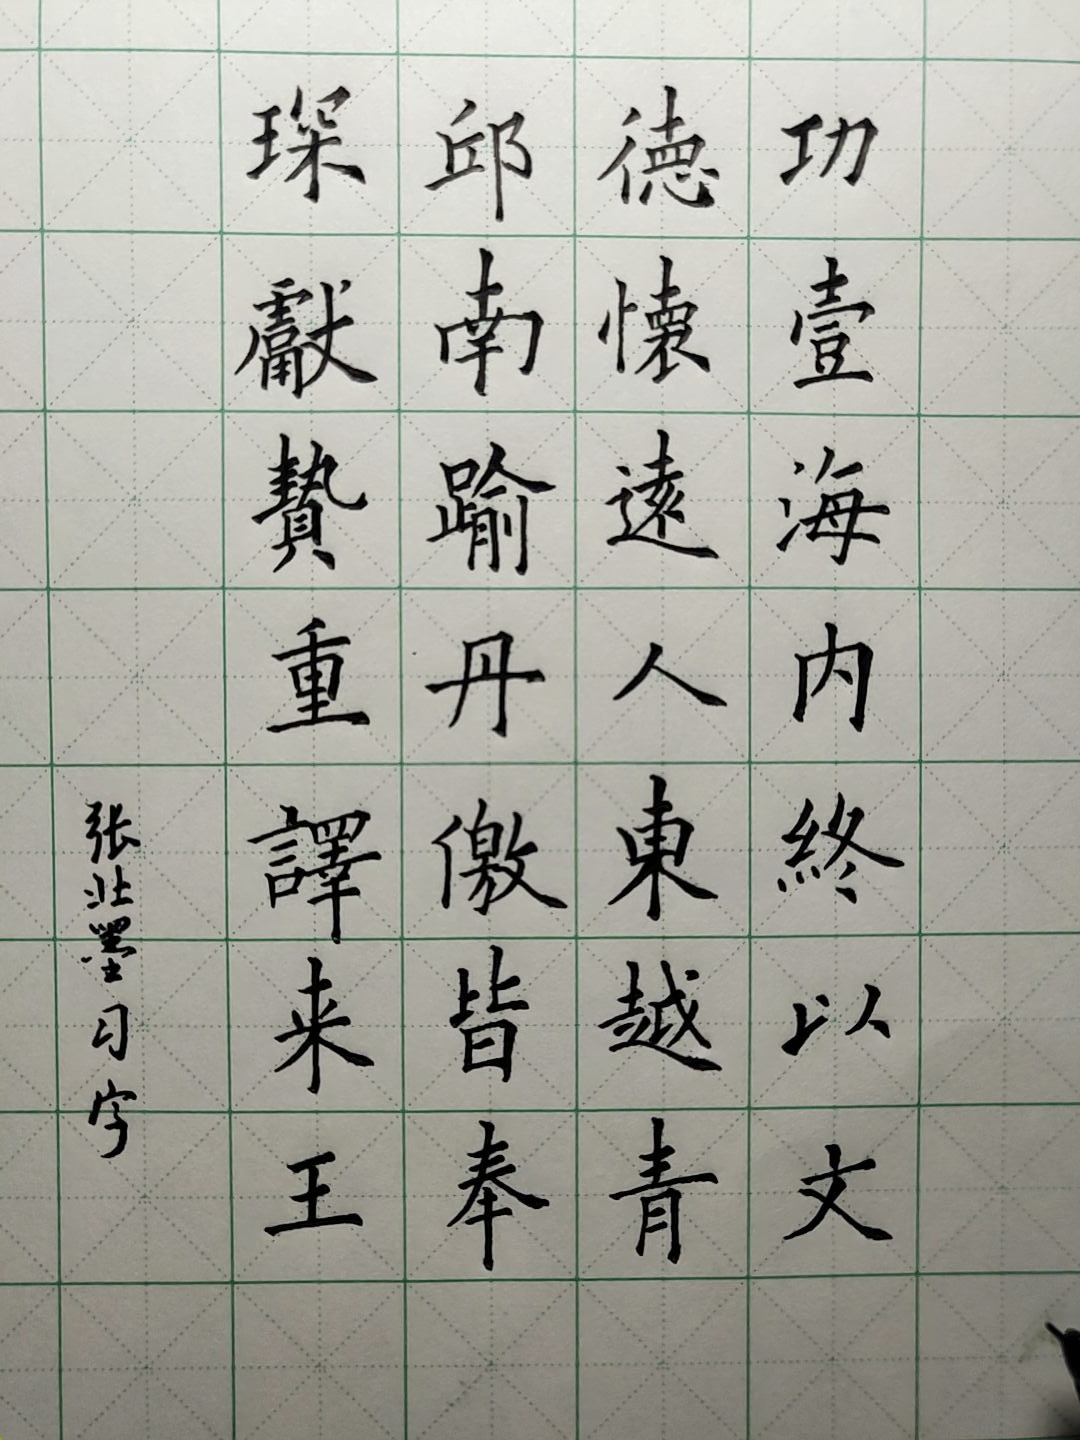 功壹海内終以文
德懷遠人東越青
邱南踰丹徼皆奉
琛獻贄重譯来王
张壮墨习字